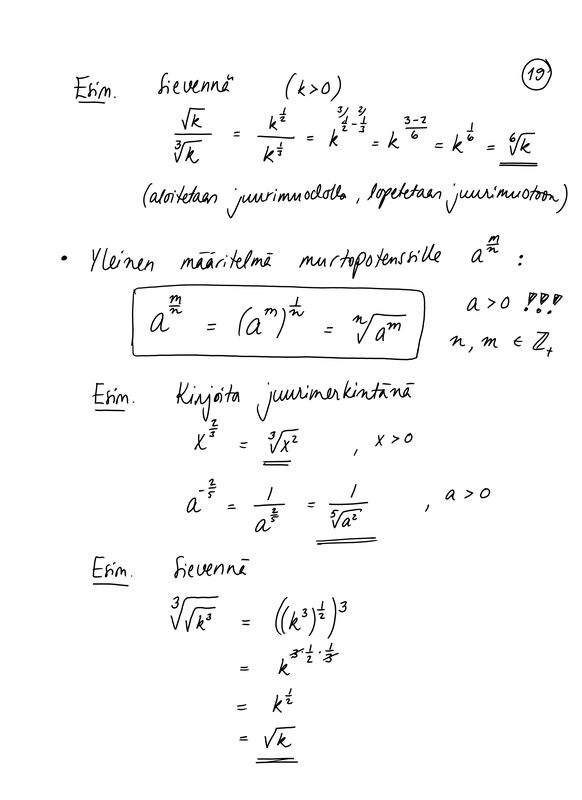 19
Esim. Sievennä (k>0)
√k / ∛k = k^(1/2) / k^(1/3) = k^(³⁾1/2 - ²⁾1/3) = k^((3-2)/6) = k^(1/6) = ⁶√k
(aloitetaan juurimuodolla, lopetetaan juurimuotoon)
• Yleinen määritelmä murtopotenssille a^(m/n) :
a^(m/n) = (a^m)^(1/n) = ⁿ√(a^m)
a > 0 !!!
n, m ∈ ℤ₊
Esim. Kirjoita juurimerkintänä
x^(2/3) = ∛(x²) , x > 0
a^(-2/5) = 1 / a^(2/5) = 1 / ⁵√(a²) , a > 0
Esim. Sievennä
∛(√(k³)) = ((k³)^(1/2))^3
= k^(3·1/2·1/3)
= k^(1/2)
= √k